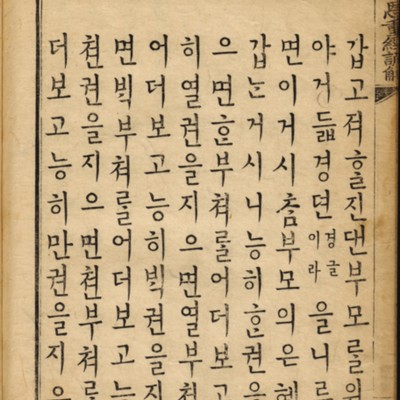 恩重經諺解
갑고져ᄒᆞᆯ진댄부모를위
야거듧경뎐경글이라을니르
면이거시ᄎᆞᆷ부모의은혜
갑ᄂᆞᆫ거시니능히ᄒᆞᆫ권을
으면ᄒᆞᆫ부쳐를어더보
히열권을지으면열부쳐
어더보고능히ᄇᆡᆨ권을지
면ᄇᆡᆨ부쳐를어더보고능
쳔권을지으면쳔부쳐를
더보고능히만권을지으